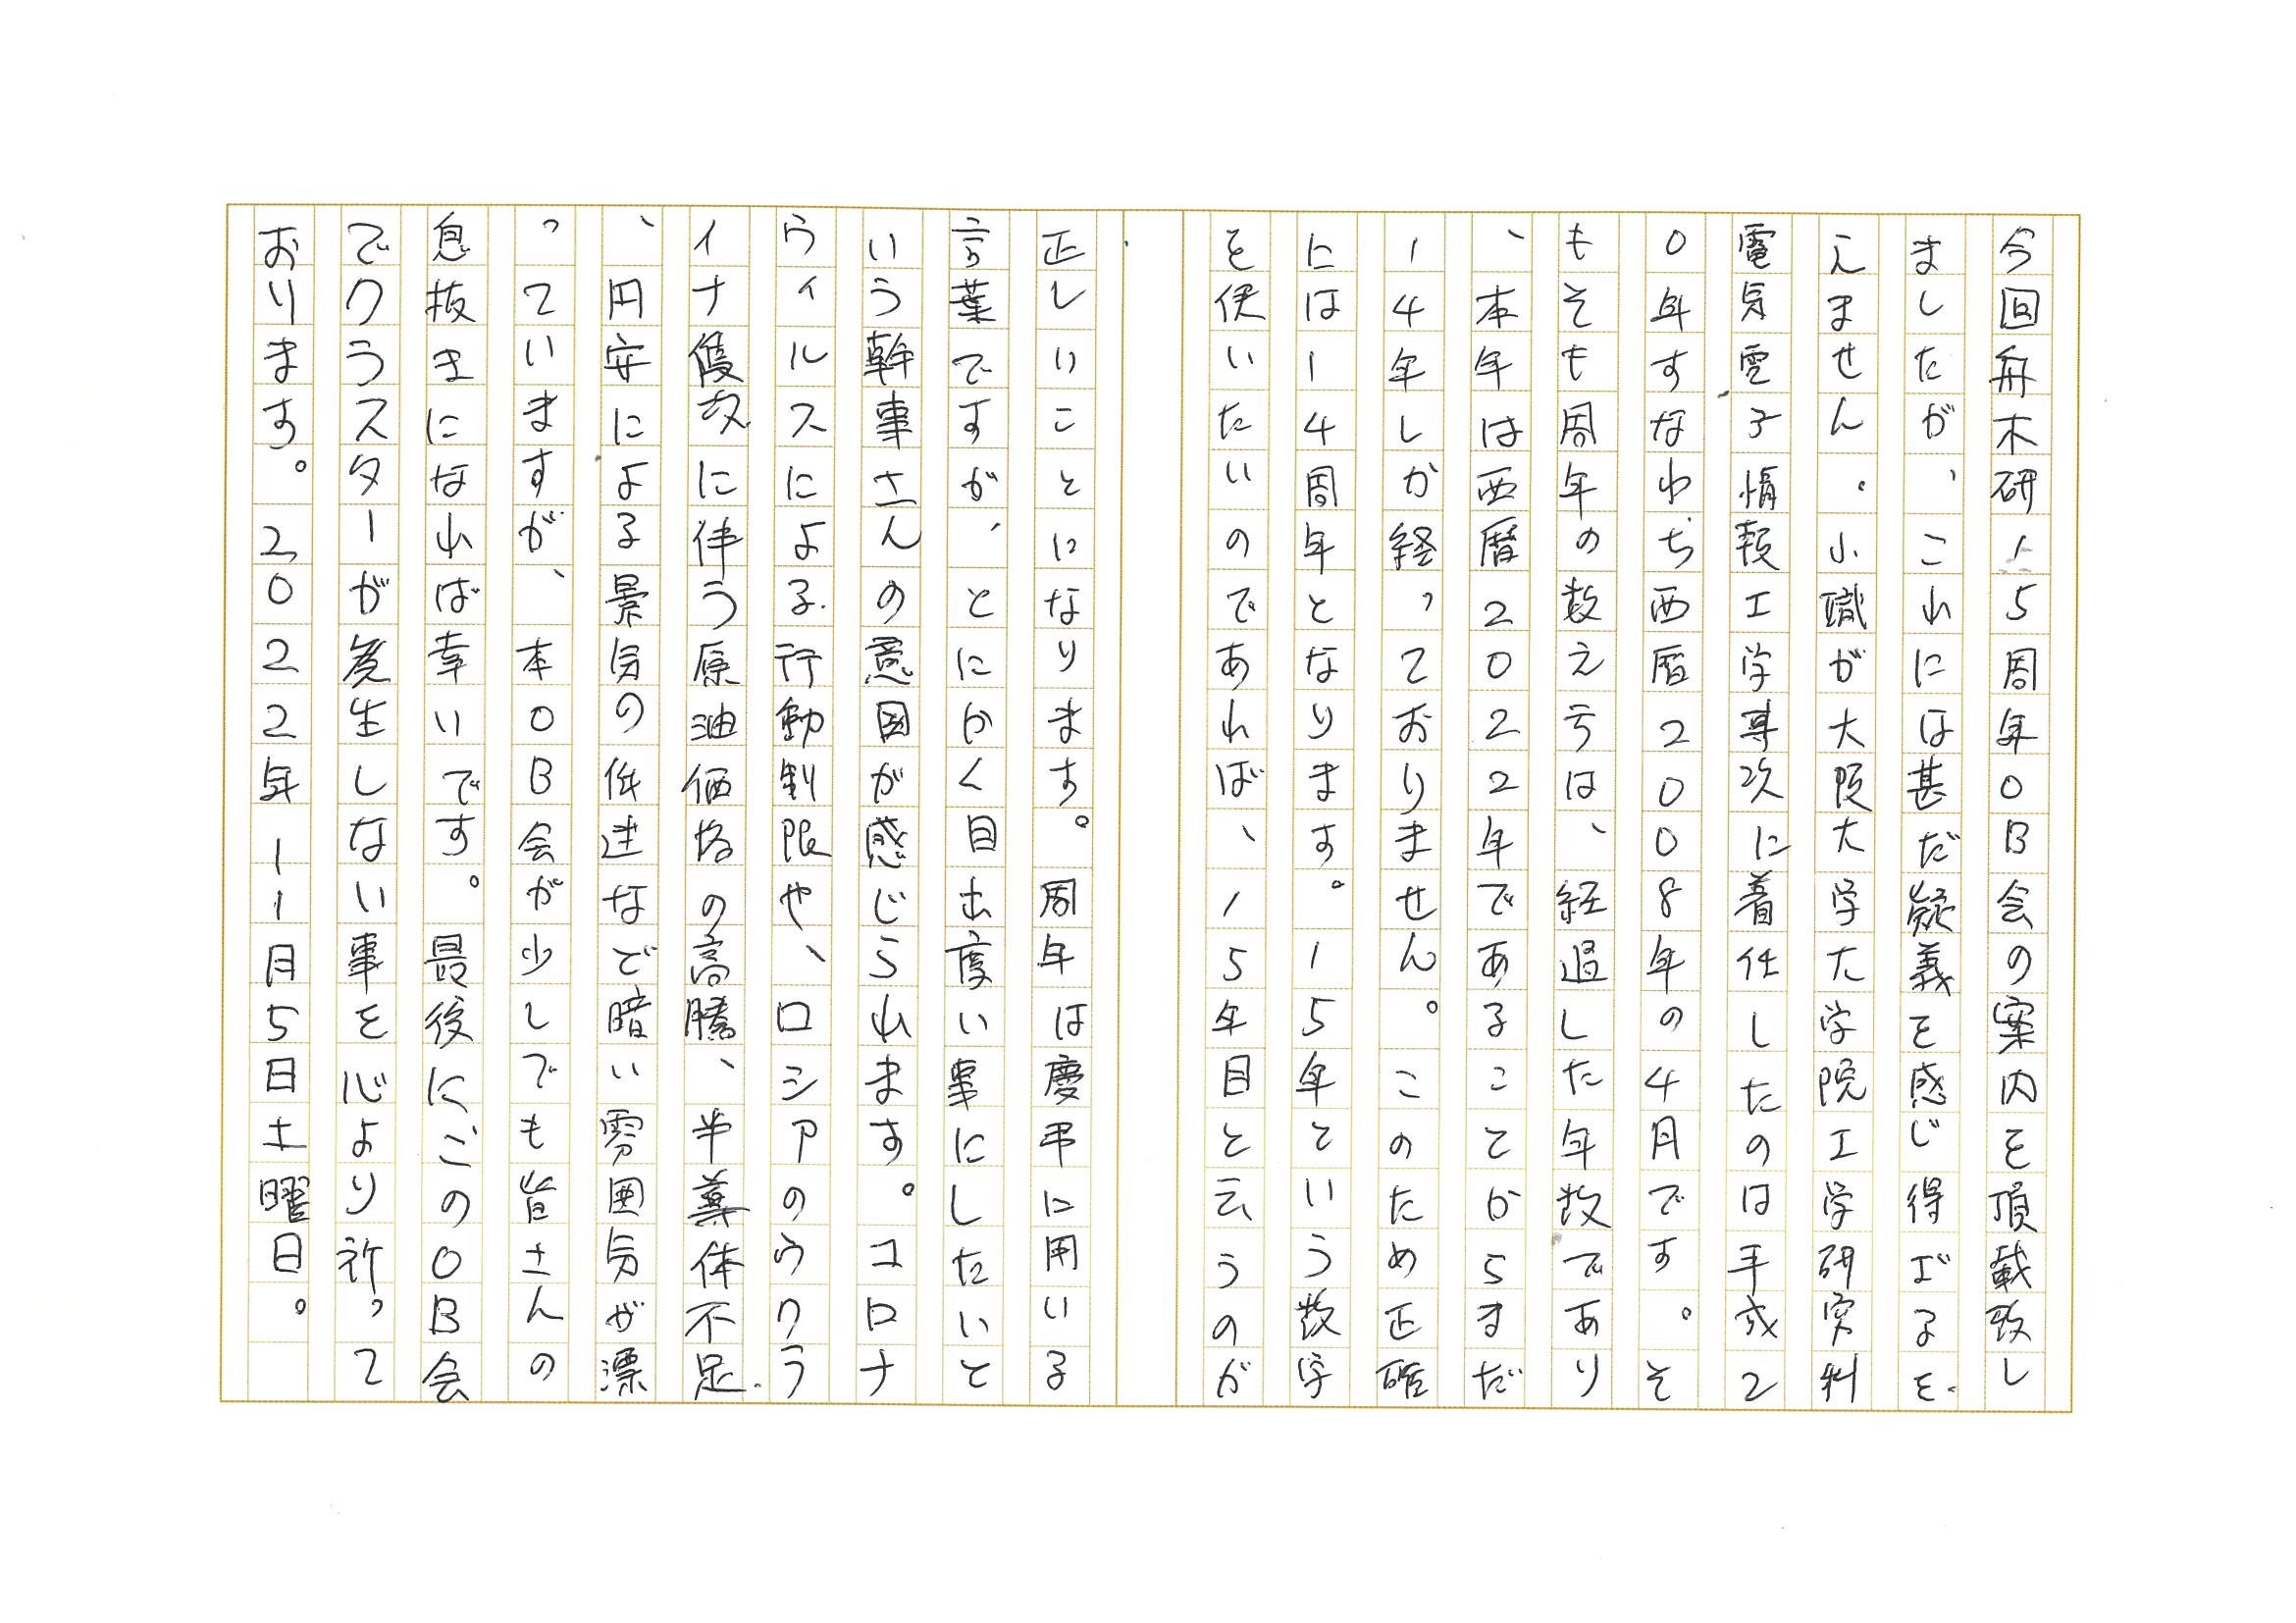 今回舟木研15周年OB会の案内を頂載致し
ましたが、これには甚だ疑義を感じ得ざるを
えません。小職が大阪大学大学院工学研究科
電気電子情報工学専攻に着任したのは平成2
0年すなわち西暦2008年の4月です。そ
もそも周年の数え方は、経過した年数であり
、本年は西暦2022年であることからまだ
14年しか経っておりません。このため正確
には14周年となります。15年という数字
を使いたいのであれば、15年目と云うのが
正しいことになります。周年は慶弔に用いる
言葉ですが、とにかく目出度い事にしたいと
いう幹事さんの意図が感じられます。コロナ
ウィルスによる行動制限や、ロシアのウクラ
イナ侵攻に伴う原油価格の高騰、半導体不足
、円安による景気の低迷などで暗い雰囲気が漂
っていますが、本OB会が少しでも皆さんの
息抜きになれば幸いです。最後にこのOB会
でクラスターが発生しない事を心より祈って
おります。2022年11月5日土曜日。